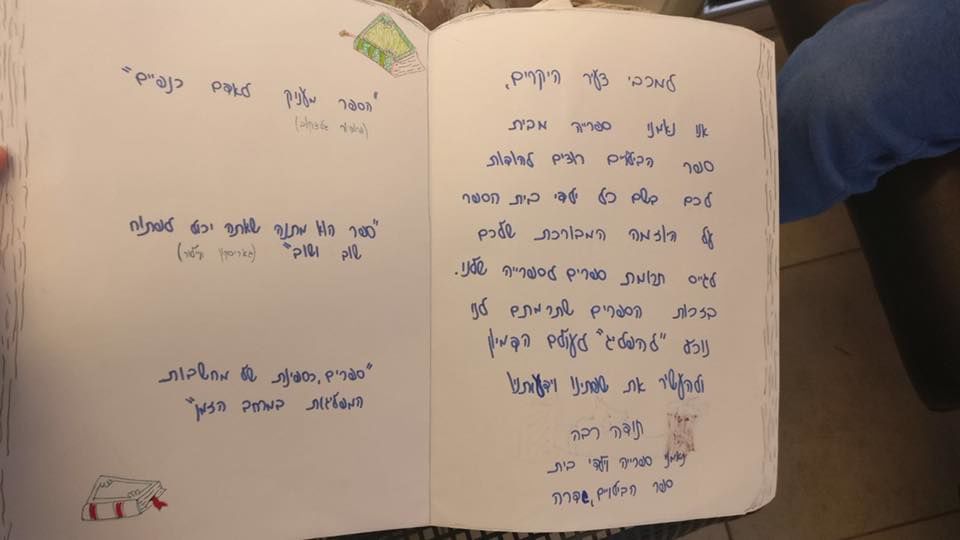 למכבי צעיר היקרים,
אנו נאמני ספרייה מבית
ספר הבילויים רוצים להודות
לכם בשם כל ילדי בית הספר
על היוזמה המבורכת שלכם
לגייס תרומת ספרים לספרייה שלנו.
בזכות הספרים שתרמתם לנו
נוכל "להפליג" לעולם הדמיון
ולהעשיר את שפתינו וידיעותינו
תודה רבה
נאמני ספרייה וילדי בית
ספר הבילויים, גדרה
"הספר מעניק לאדם כנפיים"
"ספר הוא מתנה שאתה יכול לפתוח
שוב ושוב" (גאריסון קיילור)
"ספרים, כספינת של מחשבות
המפלגות במרחב הזמן"